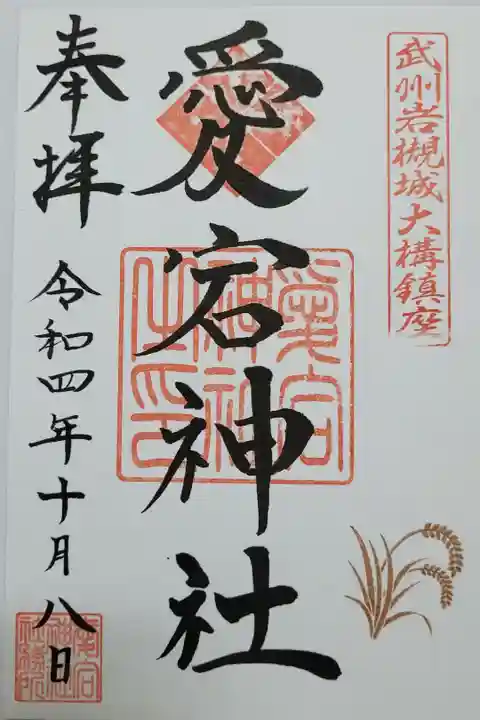 武州岩槻城大構鎮座
愛宕神社
愛宕神社之印
奉拝
令和四年十月八日
愛宕神社社務所